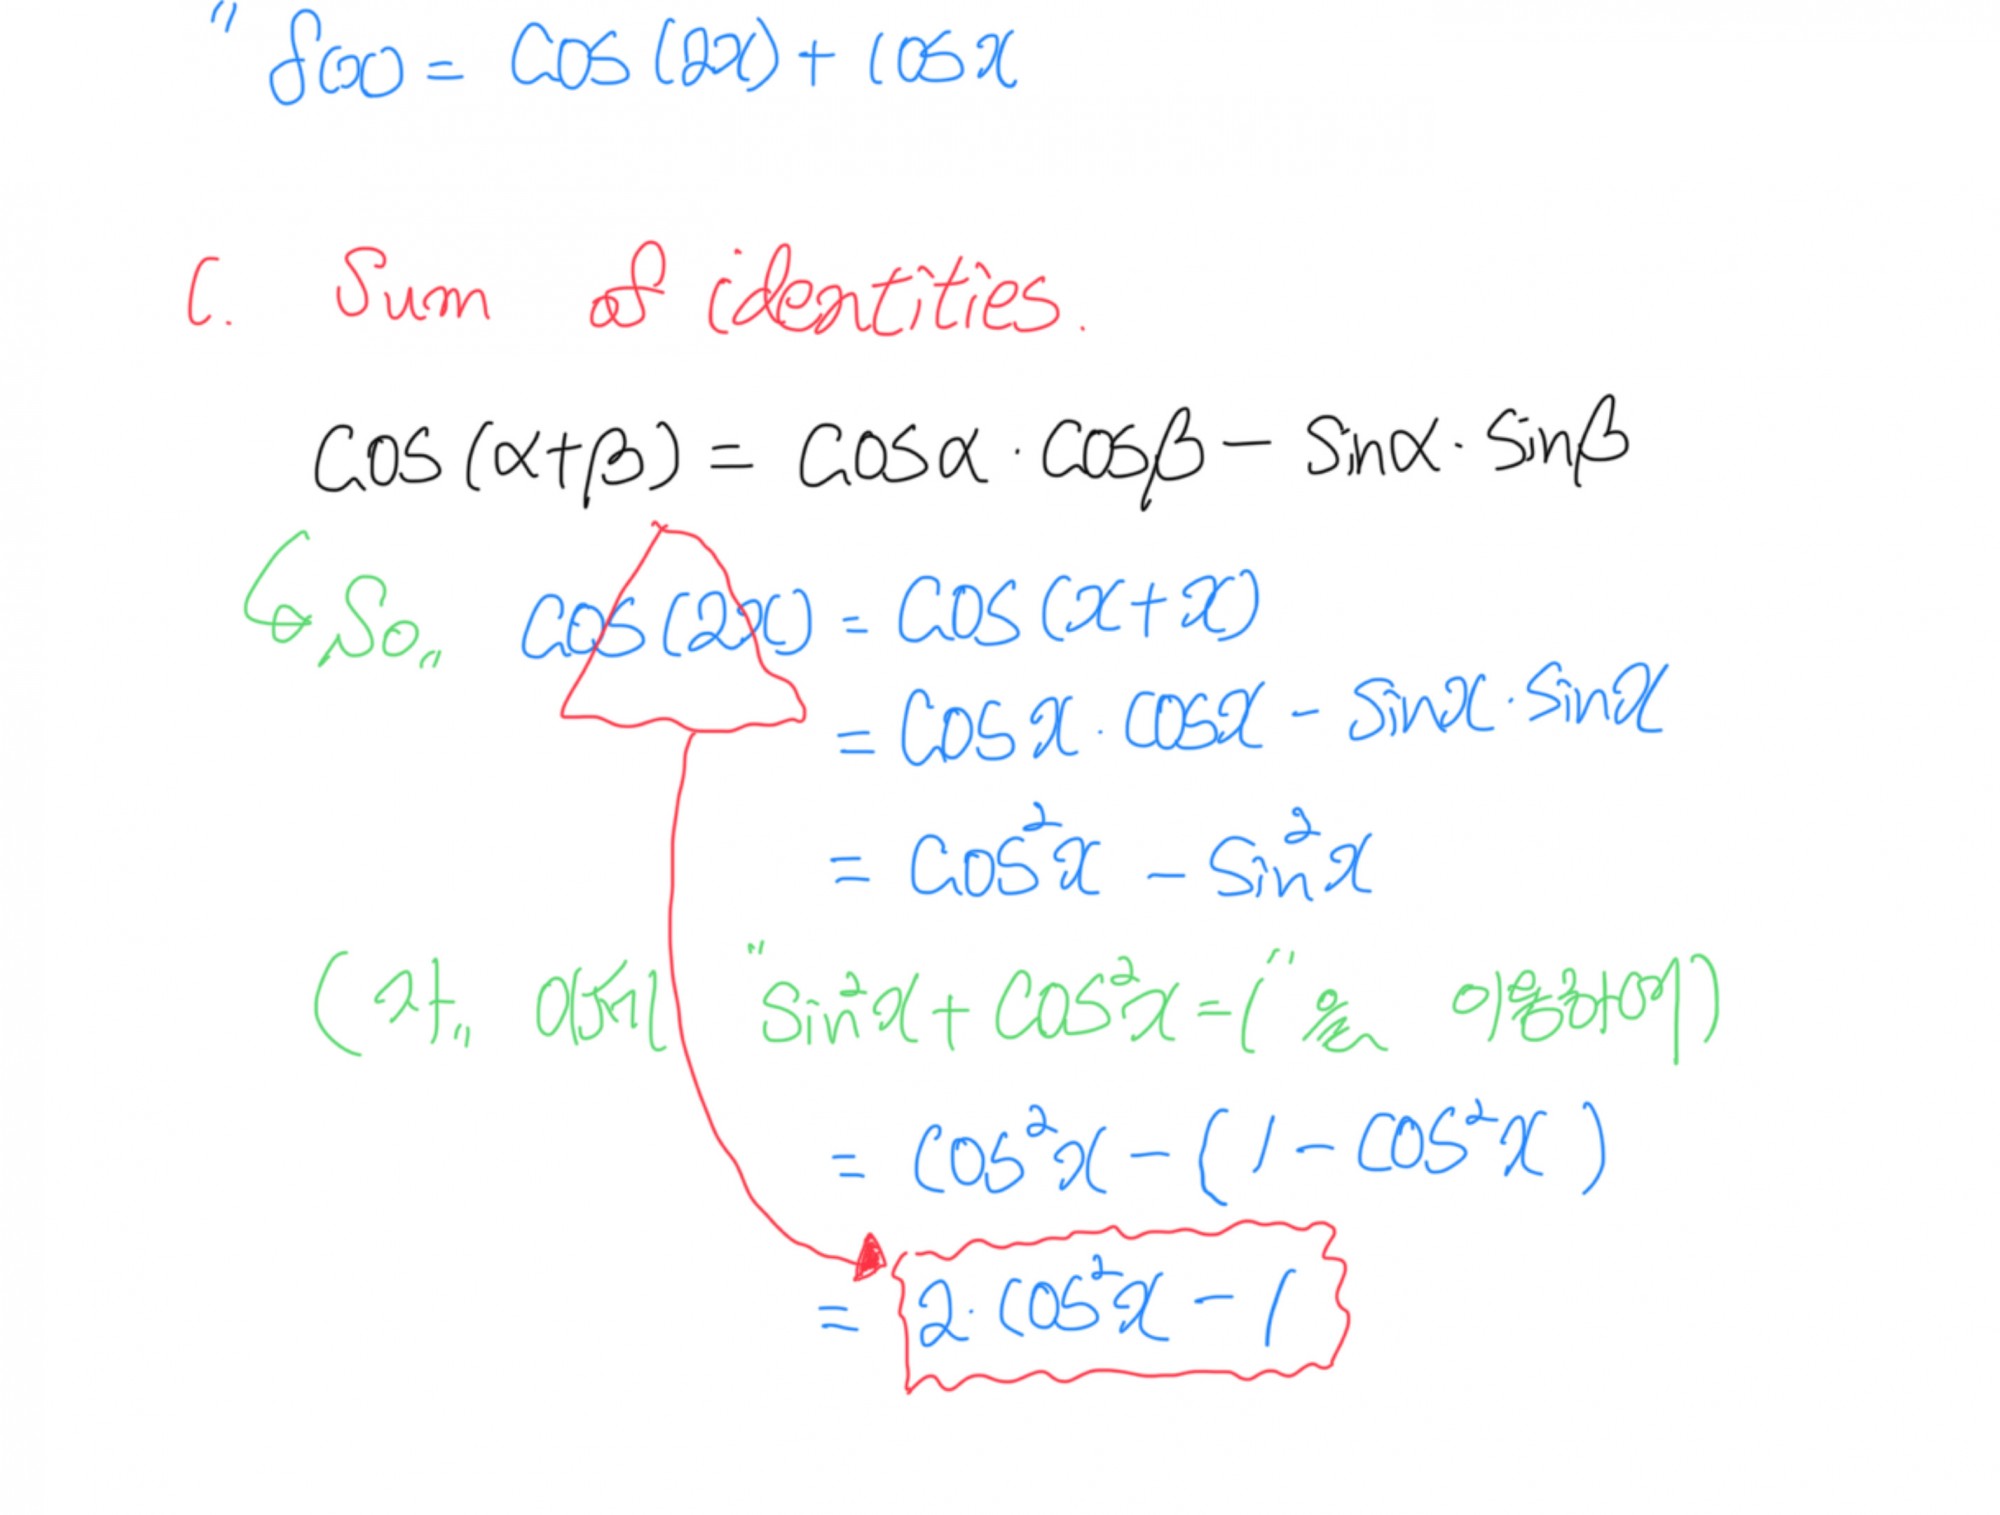 " f(x) = cos(2x) + cosx
C. Sum of identities.
cos(α+β) = cosα · cosβ - sinα · sinβ
So,, cos(2x) = cos(x+x)
= cosx · cosx - sinx · sinx
= cos²x - sin²x
(자,, 여기서 "sin²x + cos²x = 1" 을 이용하여)
= cos²x - (1 - cos²x)
= 2 · cos²x - 1